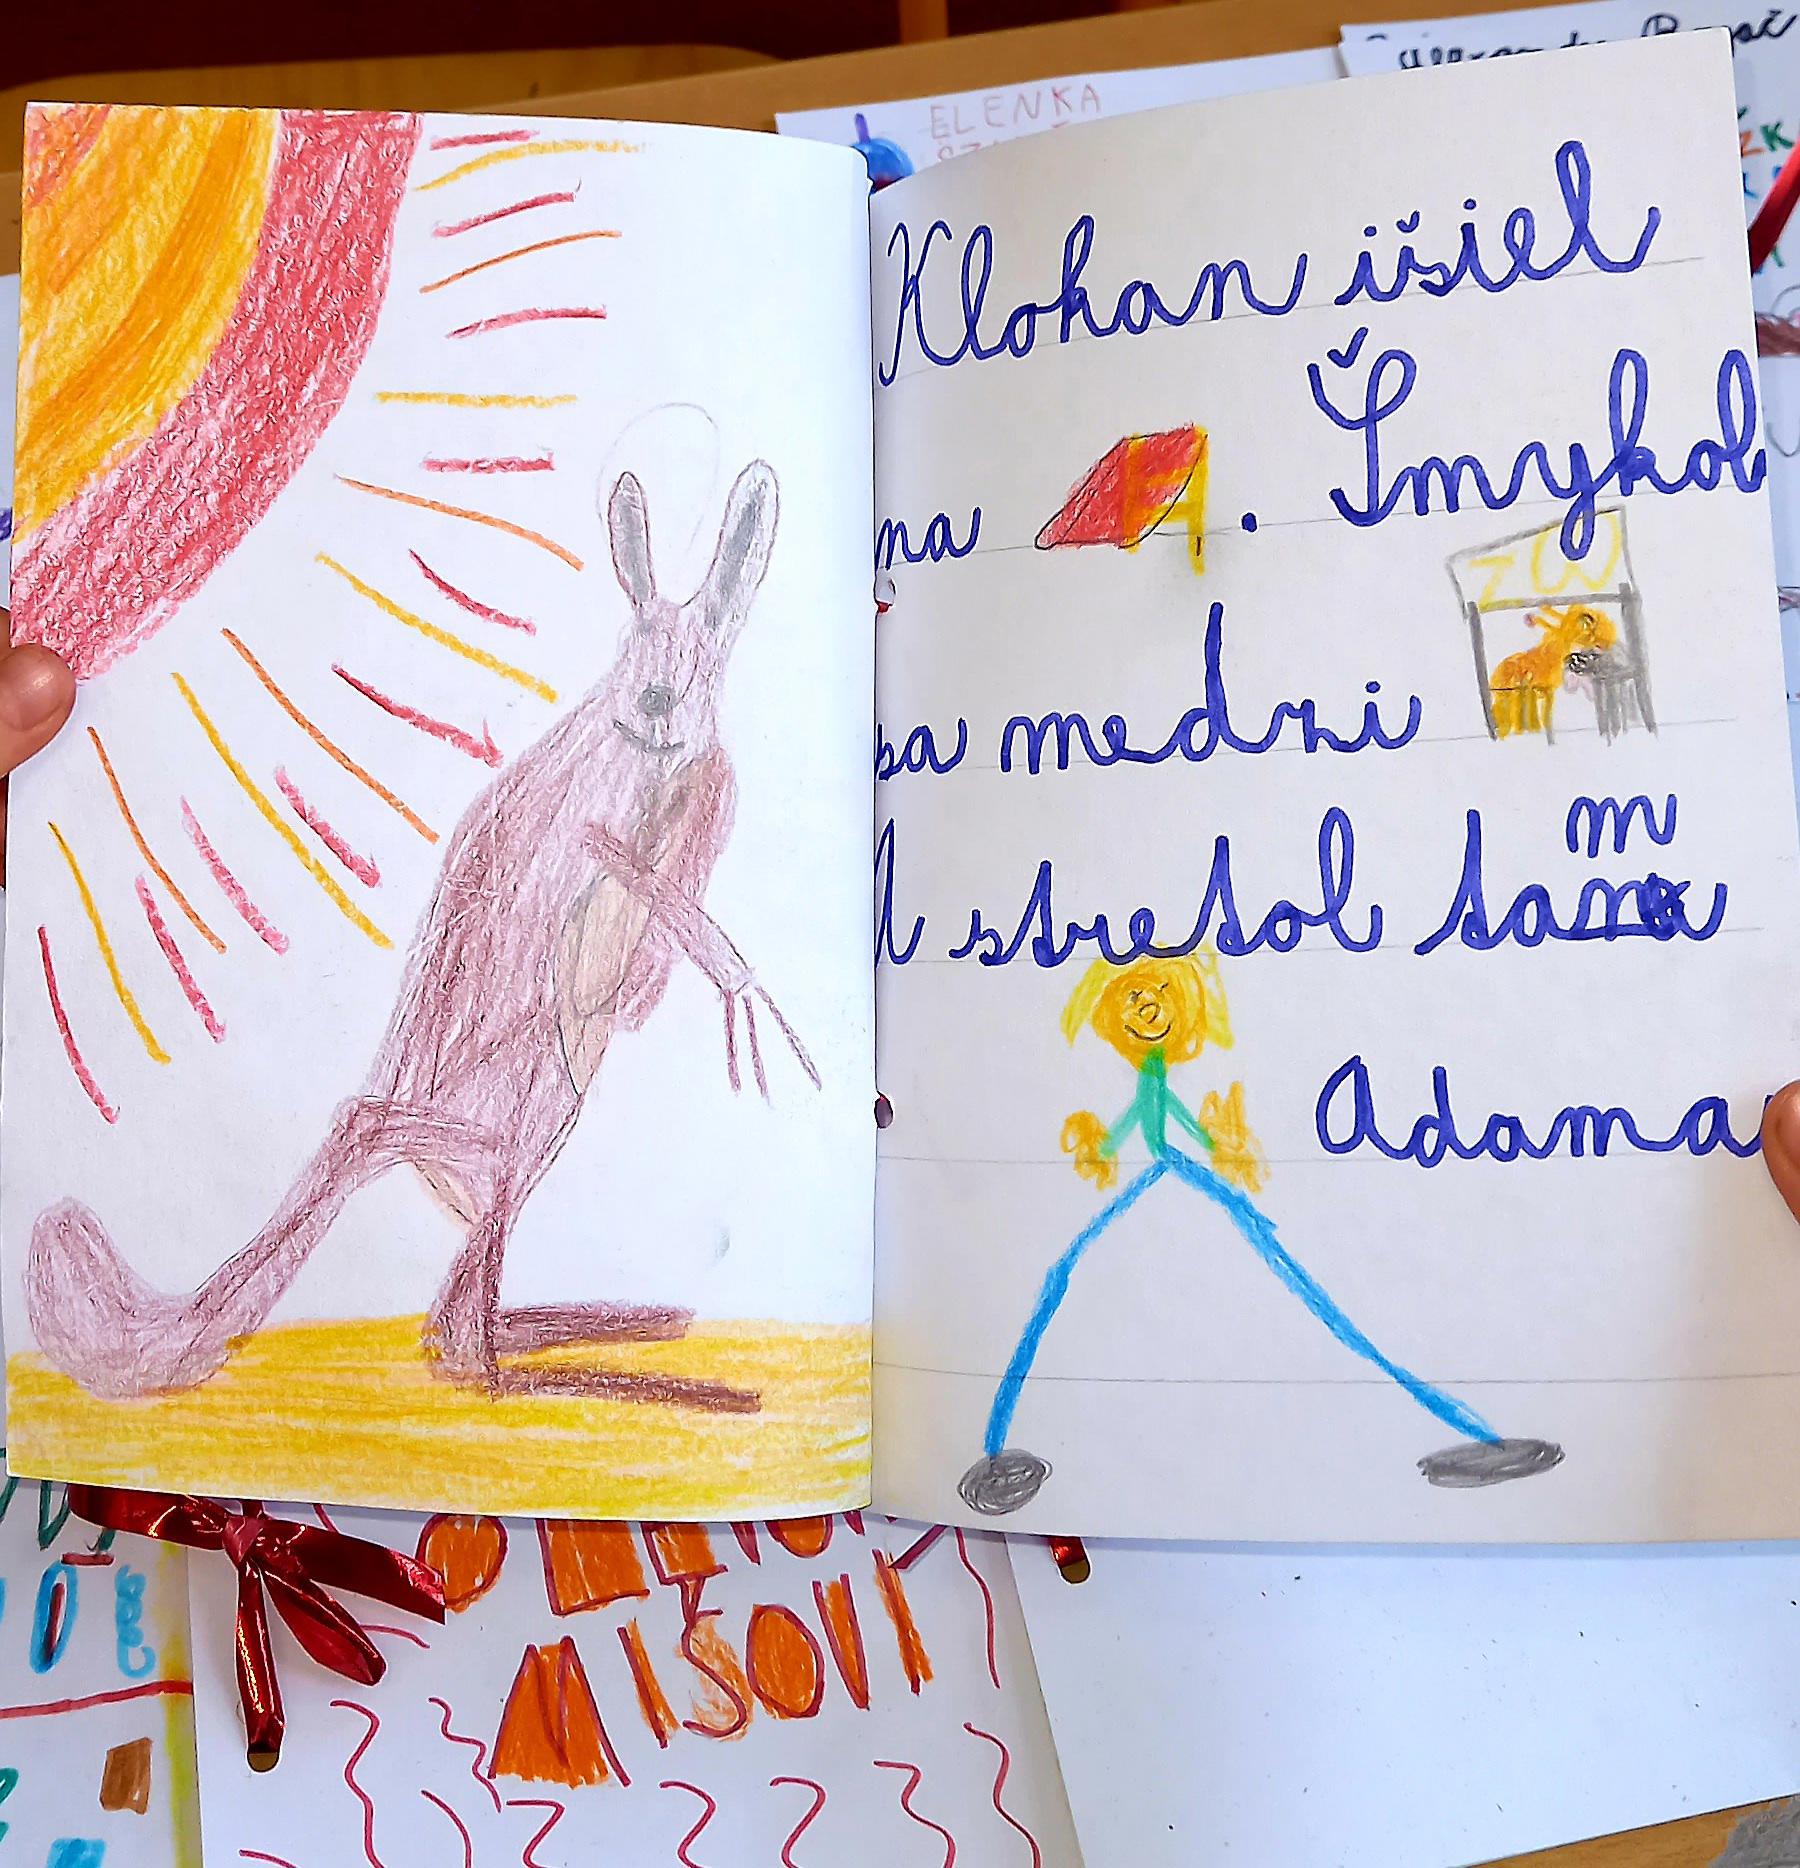 ELENKA
Klokan išiel
na . Šmykol
ZOO
sa medzi
m
A stretol tam
Adama
MISOVI